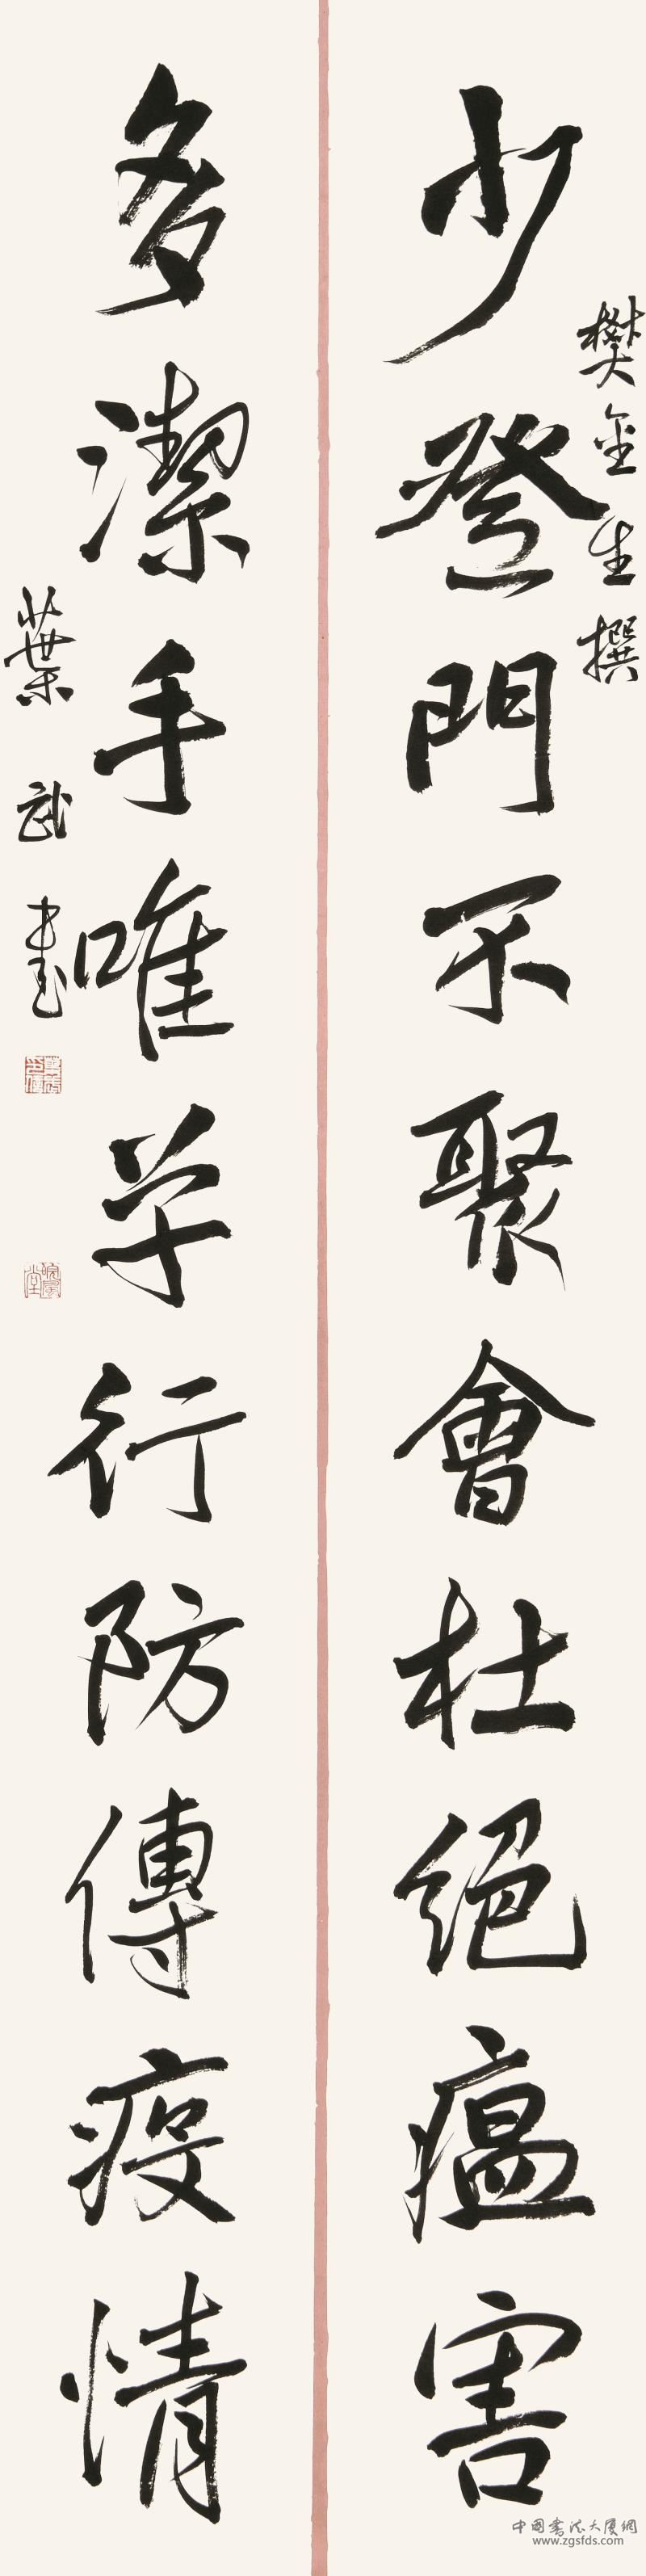 少登門不聚會杜絕瘟害
樊金生撰
多潔手唯單行防傳疫情
葉武書
中国書法大廈網
www.zgsfds.com